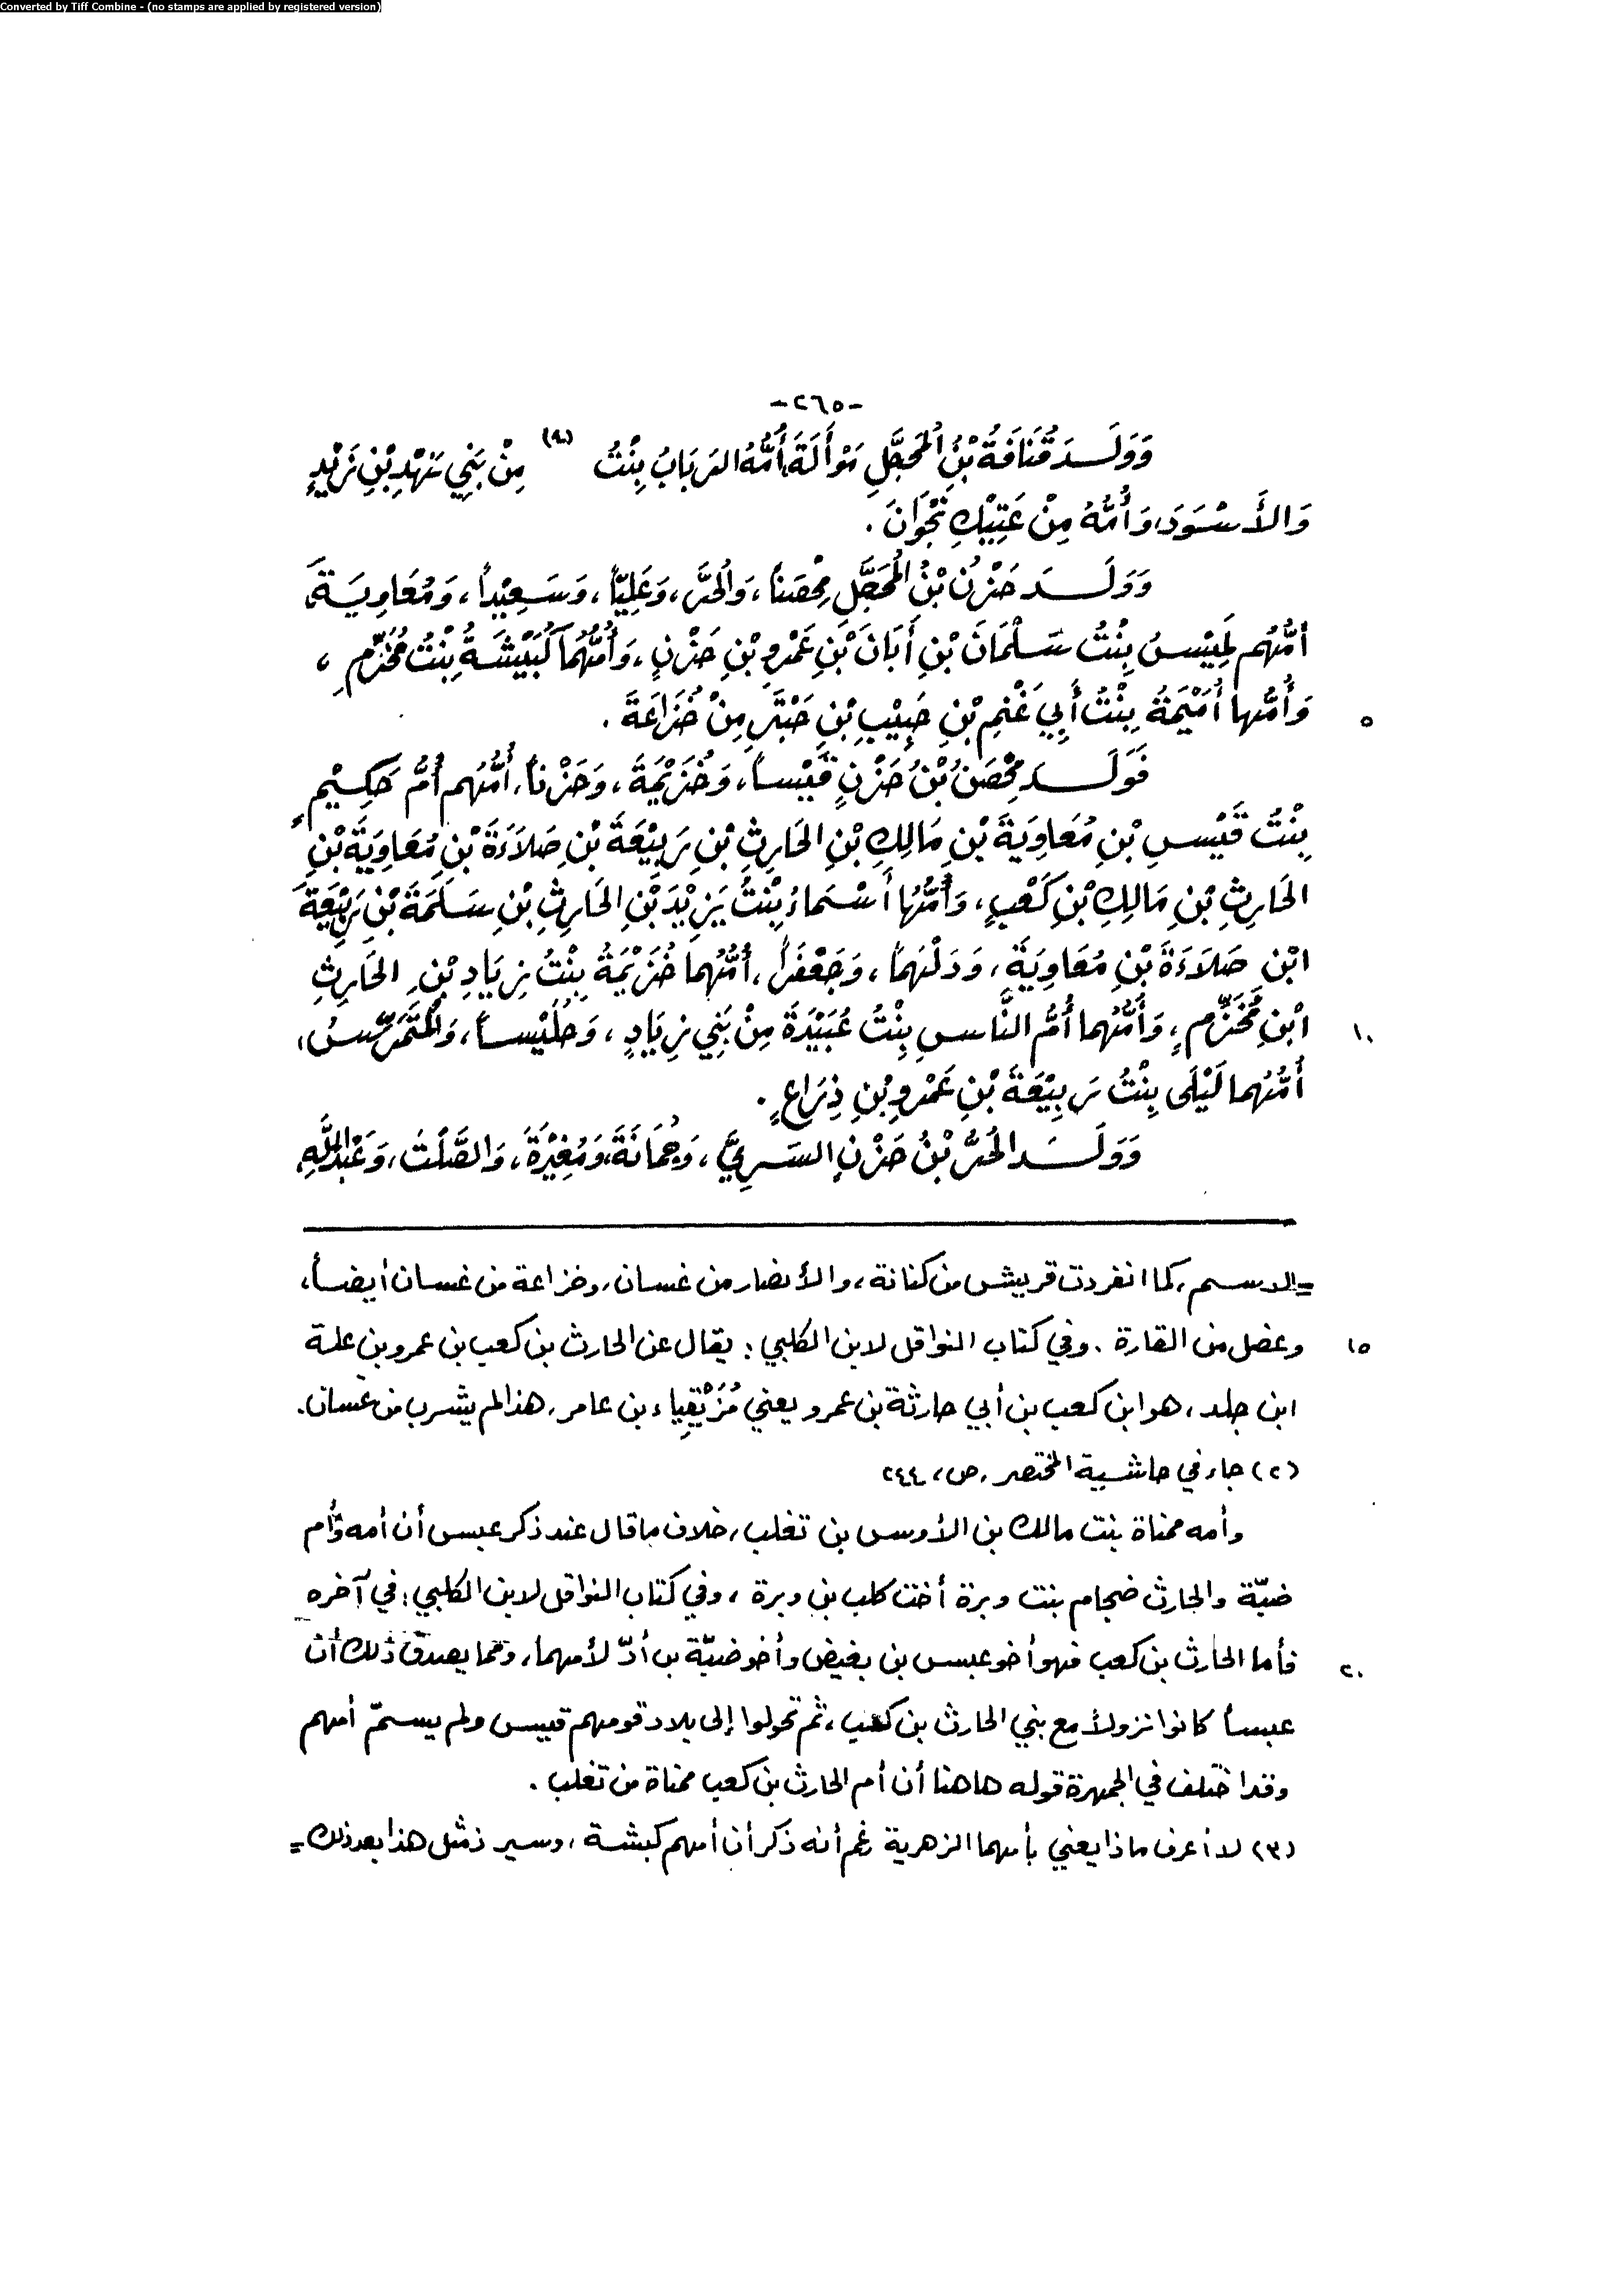 Converted by Tiff Combine - (no stamps are applied by registered version)
-٢٦٥-
وَوَلَـدَ قُنَافَةُ بْنُ الْمُحَجَّلِ مَوْأَلَةَ، أُمُّهُ الرَّبَابُ بِنْتُ (٩) مِنْ بَنِي نَهْدِ بْنِ زَيْدٍ
وَالأَسْوَدَ، وَأُمُّهُ مِنْ عَتِيْكِ نَجْرَانَ .
وَوَلَـدَ حَزْنُ بْنُ الْمُحَجَّلِ مِحْصَناً، وَالْحُرَّ، وَعَلِيّاً، وَسَعِيْداً، وَمُعَاوِيَةَ،
أُمُّهُم لَمِيْسُ بِنْتُ سَلْمَانَ بْنِ أَبَانَ بْنِ عَمْرِو بْنِ حَزْنٍ، وَأُمُّهُمَا كُبَيْشَةُ بِنْتُ مُخَرِّمٍ،
وَأُمُّها أُمَيْمَةُ بِنْتُ أَبِي غَنْمِ بْنِ حَبِيْبِ بْنِ حَبْتَرِ مِنْ خُزَاعَةَ .
٥
فَوَلَـدَ مِحْصَنُ بْنُ حَزْنٍ قَيْساً، وَخُزَيْمَةَ، وَحَزْناً، أُمُّهُم أُمُّ حَكِيْمٍ
بِنْتُ قَيْسِ بْنِ مُعَاوِيَةَ بْنِ مَالِكِ بْنِ الحَارِثِ بْنِ رَبِيْعَةَ بْنِ صَلَاءَةَ بْنِ مُعَاوِيَةَ بْنِ
الحَارِثِ بْنِ مَالِكِ بْنِ كَعْبٍ، وَأُمُّهَا أَسْمَاءُ بِنْتُ يَزِيْدَ بْنِ الحَارِثِ بْنِ سَلَمَةَ بْنِ رَبِيْعَةَ
ابْنِ صَلَاءَةَ بْنِ مُعَاوِيَةَ، وَدَلْهَماً، وَجَعْفَراً، أُمُّهُما خُزَيْمَةُ بِنْتُ زِيَادِ بْنِ الحَارِثِ
ابْنِ مُخَرِّمٍ، وَأُمُّهُما أُمُّ النَّاسِ بِنْتُ عُبَيْدَةَ مِنْ بَنِي زِيَادٍ، وَحُلَيْساً، وَالْمُتَمَرِّسَ،
١٠
أُمُّهُما لَيْلَى بِنْتُ رَبِيْعَةَ بْنِ عَمْرِو بْنِ ذِرَاعٍ .
وَوَلَـدَ الْحُرُّ بْنُ حَزْنٍ السَّرِيَّ، وَجُمَانَةَ، وَمُغِيْرَةَ، وَالصَّلْتَ، وَعَبْدَ اللَّهِ،
= الدسم، كما انفردت قريش من كنانة، والأنصار من غسان، وخزاعة من غسان أيضاً،
وعضل من القارة . وفي كتاب النواقل لابن الكلبي : يقال عن الحارث بن كعب بن عمرو بن علة
١٥
ابن جلد، هو ابن كعب بن أبي حارثة بن عمرو يعني مُزَيْقِياء بن عامر، هذا لم يشرب من غسان.
(٢) جاء في حاشية المختصر، ص، ٢٤٤
وأمه مماة بنت مالك بن الأوس بن تغلب، خلاف ما قال عند ذكر عبس أن أمه وأم
ضبّة والحارث ضجام بنت وبرة أخت كلب بن وبرة، وفي كتاب النواقل لابن الكلبي : في آخره
فأما الحارث بن كعب فهو أخو عبس بن بغيض وأخو ضبّة بن أدّ لأمهما، ومما يصدق ذلك أن
٢٠
عبساً كانوا نزولاً مع بني الحارث بن كعب، ثم تحولوا إلى بلاد قومهم قيس ولم يسمّ أمهم
وقد اختلف في الجمهرة قوله هاهنا أن أم الحارث بن كعب مماة من تغلب .
(٣) لا أعرف ماذا يعني بأمهما الزهرية رغم أنه ذكر أن أمهم كبشة، وسيرد مثل هذا بعد ذلك =